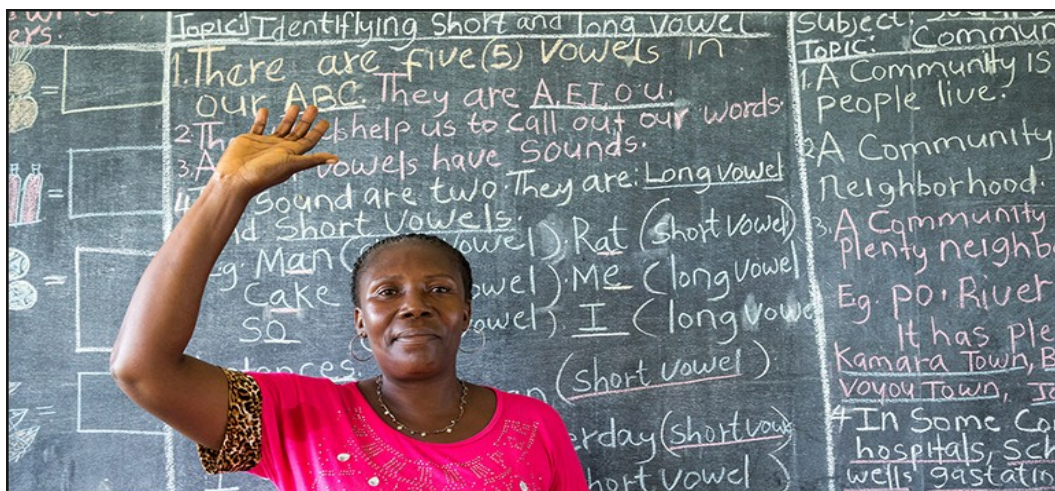 ers.
Topic: Identiflying Short and long Vowel
1. There are five (5) Vowels in
our ABC. They are A, E I, o u.
2 help us to call out our words.
3. vowels have Sounds.
4 Sound are two. They are: Long vowel
Short Vowels.
Eg. Man ( vowel). Rat (short vowel)
Cake vowel). Me (long vowel
So vowel). I (long vowe
(short vowel)
(short vow
hort vowel)
Subject:
Topic: Commun
1. A Community is
people live.
2 A Community
Neighborhood.
3. A Community
plenty neighb
Eg. po, River
It has ple
Kamara Town, B
Voyou Town,
# In Some Co
hospitals, Sch
wells gastatin